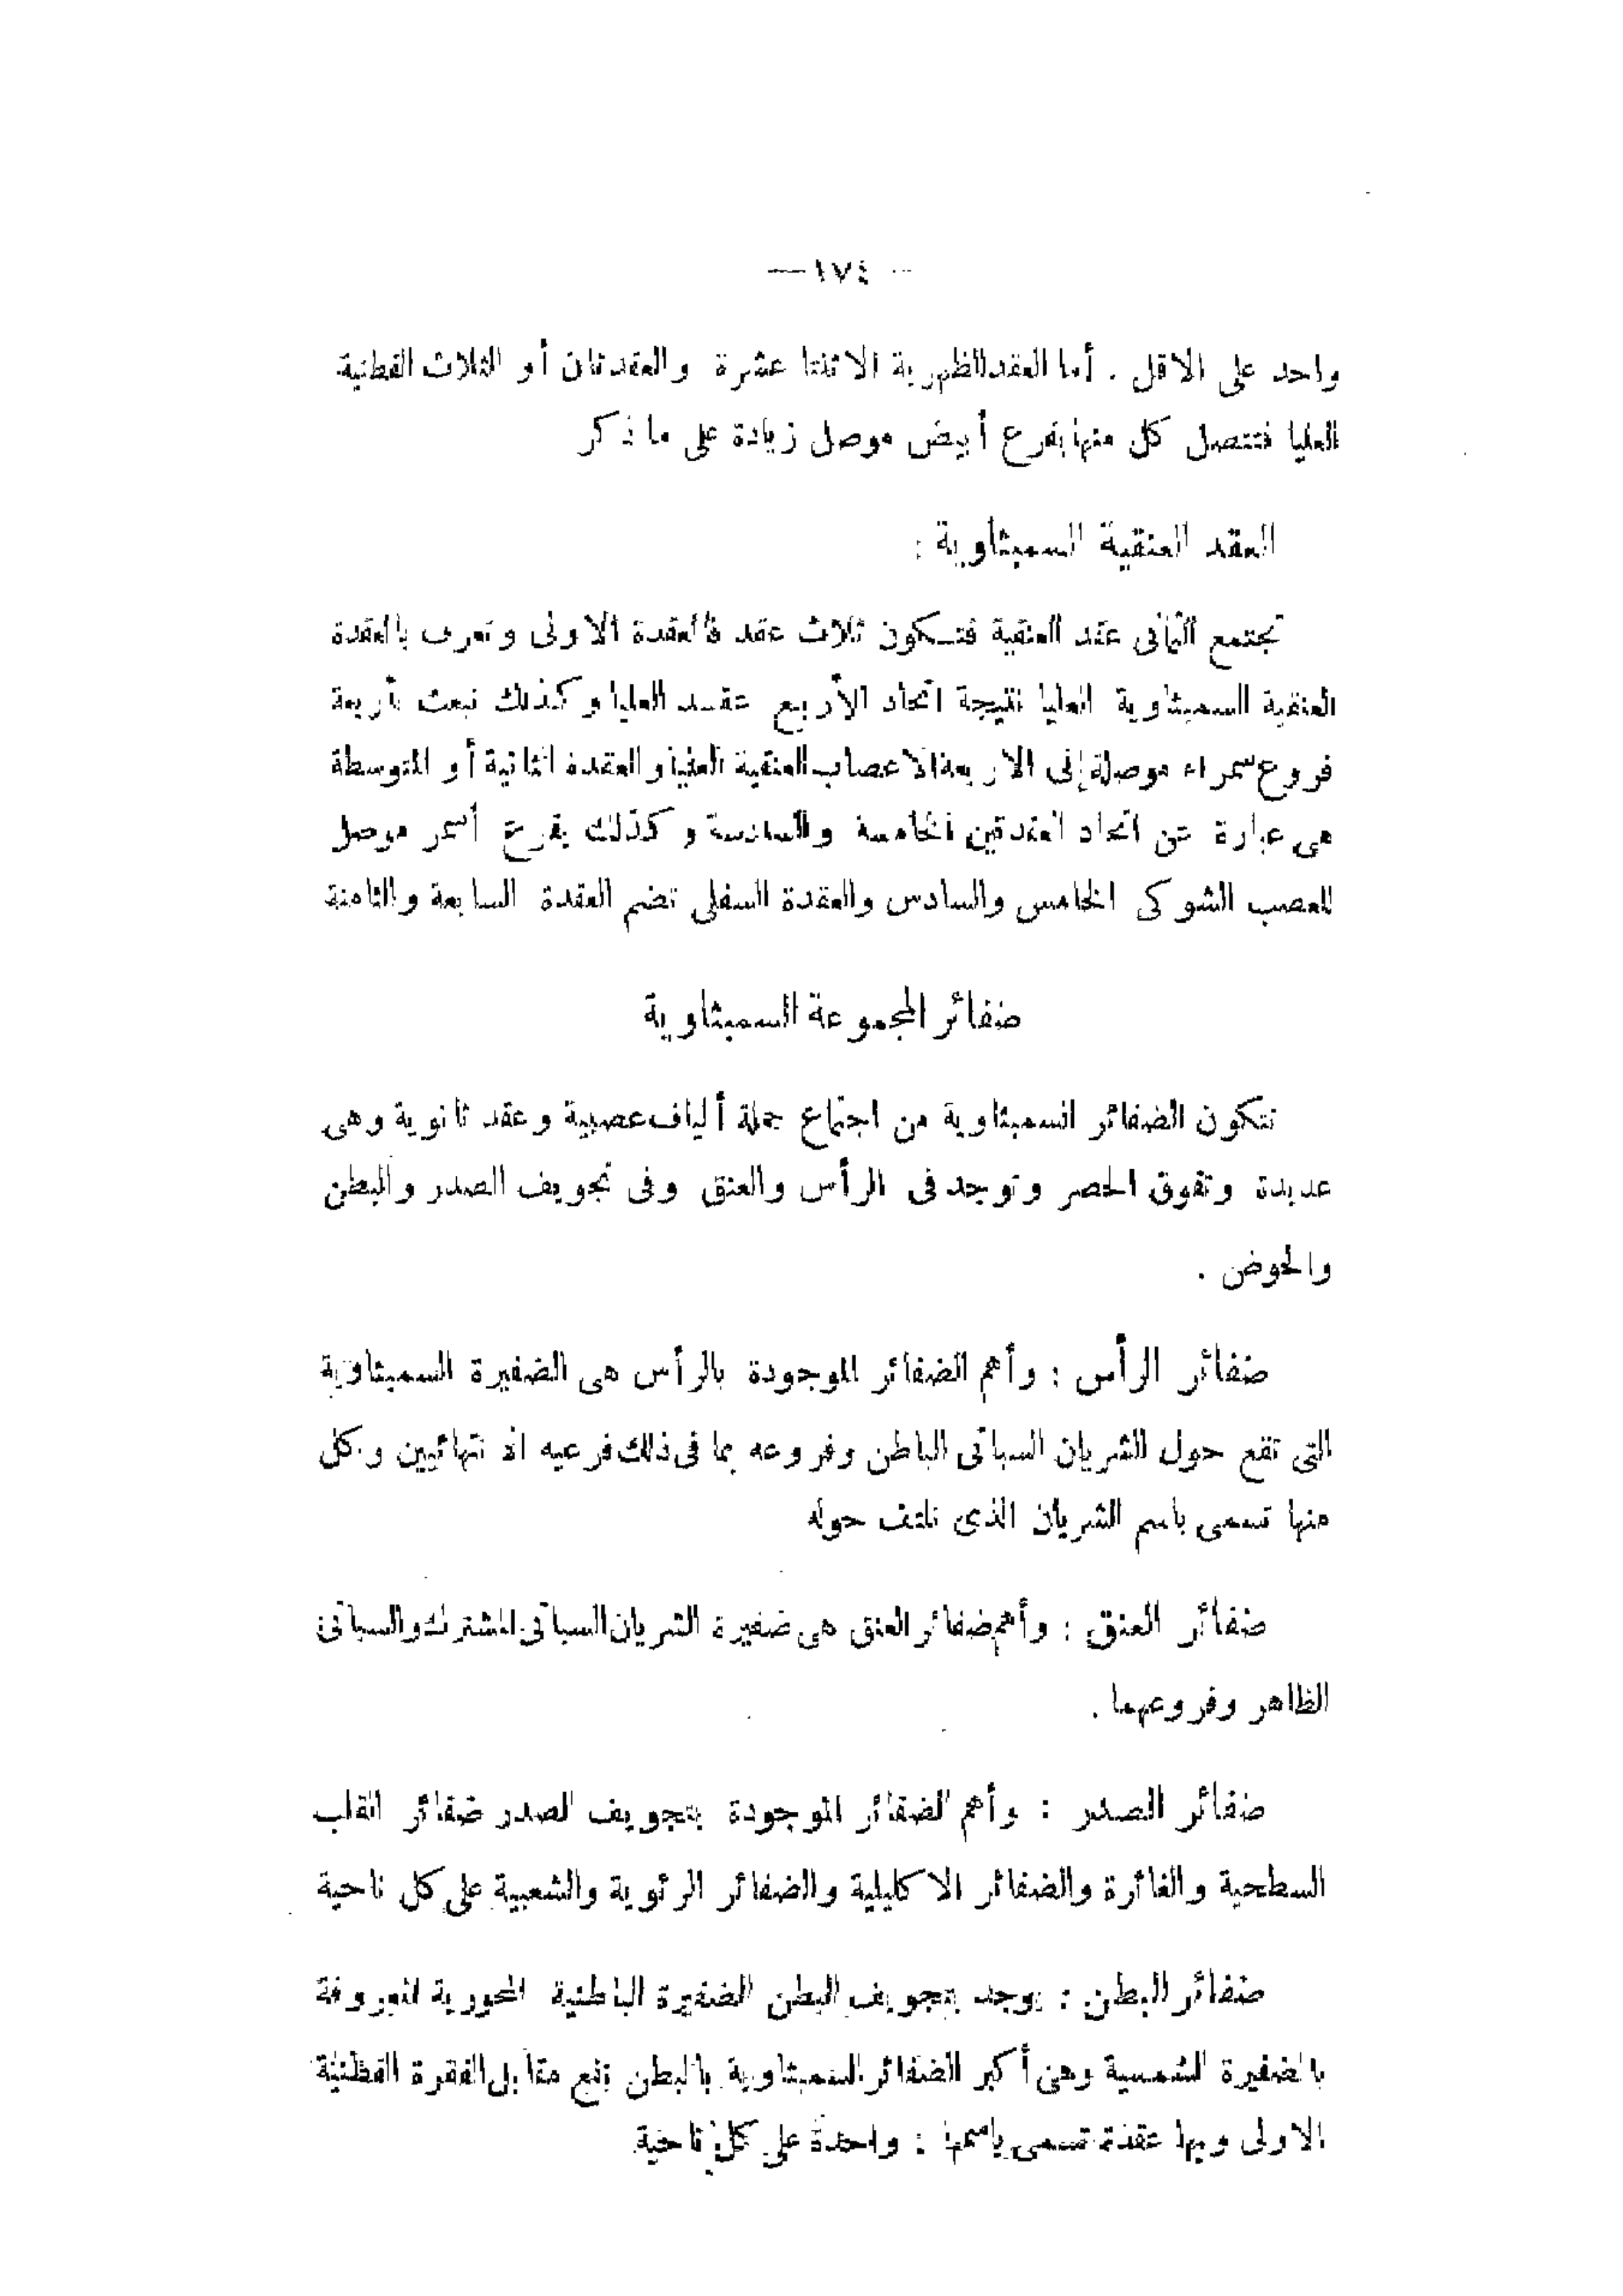 — ١٧٤ —
واحد على الاقل . أما العقد الظهرية الاثنتا عشرة والعقدتان أو الثلاث القطنية
العليا فتتصل كل منها بفرع أبيض موصل زيادة على ما ذكر
العقد العنقية السمبثاوية :
تجتمع الثمانى عقد العنقية فتكون ثلاث عقد فالعقدة الاولى وتعرف بالعقدة
العنقية السمبثاوية العليا نتيجة اتحاد الأربع عقد العليا وكذلك تبعث بأربعة
فروع سمراء موصلة إلى الاربعة الاعصاب العنقية العليا والعقدة الثانية أو المتوسطة
هى عبارة عن اتحاد العقدتين الخامسة والسادسة وكذلك بفرع أسمر موصل
للعصب الشوكى الخامس والسادس والعقدة السفلى تضم العقدة السابعة والثامنة
ضفائر المجموعة السمبثاوية
تتكون الضفائر السمبثاوية من اجتماع جملة ألياف عصبية وعقد ثانوية وهى
عديدة وتفوق الحصر وتوجد فى الرأس والعنق وفى تجويف الصدر والبطن
والحوض .
ضفائر الرأس : وأهم الضفائر الموجودة بالرأس هى الضفيرة السمبثاوية
التى تقع حول الشريان السباتى الباطن وفروعه بما فى ذلك فرعيه الانتهائيين وكل
منها تسمى باسم الشريان الذى تلتف حوله
ضفائر العنق : وأهم ضفائر العنق هى ضفيرة الشريان السباتى المشترك والسباتى
الظاهر وفروعهما .
ضفائر الصدر : وأهم الضفائر الموجودة بتجويف الصدر ضفائر القلب
السطحية والغائرة والضفائر الاكليلية والضفائر الرئوية والشعبية على كل ناحية
ضفائر البطن : يوجد بتجويف البطن الضفيرة الباطنية المحورية المعروفة
بالضفيرة الشمسية وهى أكبر الضفائر السمبثاوية بالبطن تقع مقابل الفقرة القطنية
الاولى وبها عقدة تسمى باسمها : واحدة على كل ناحية